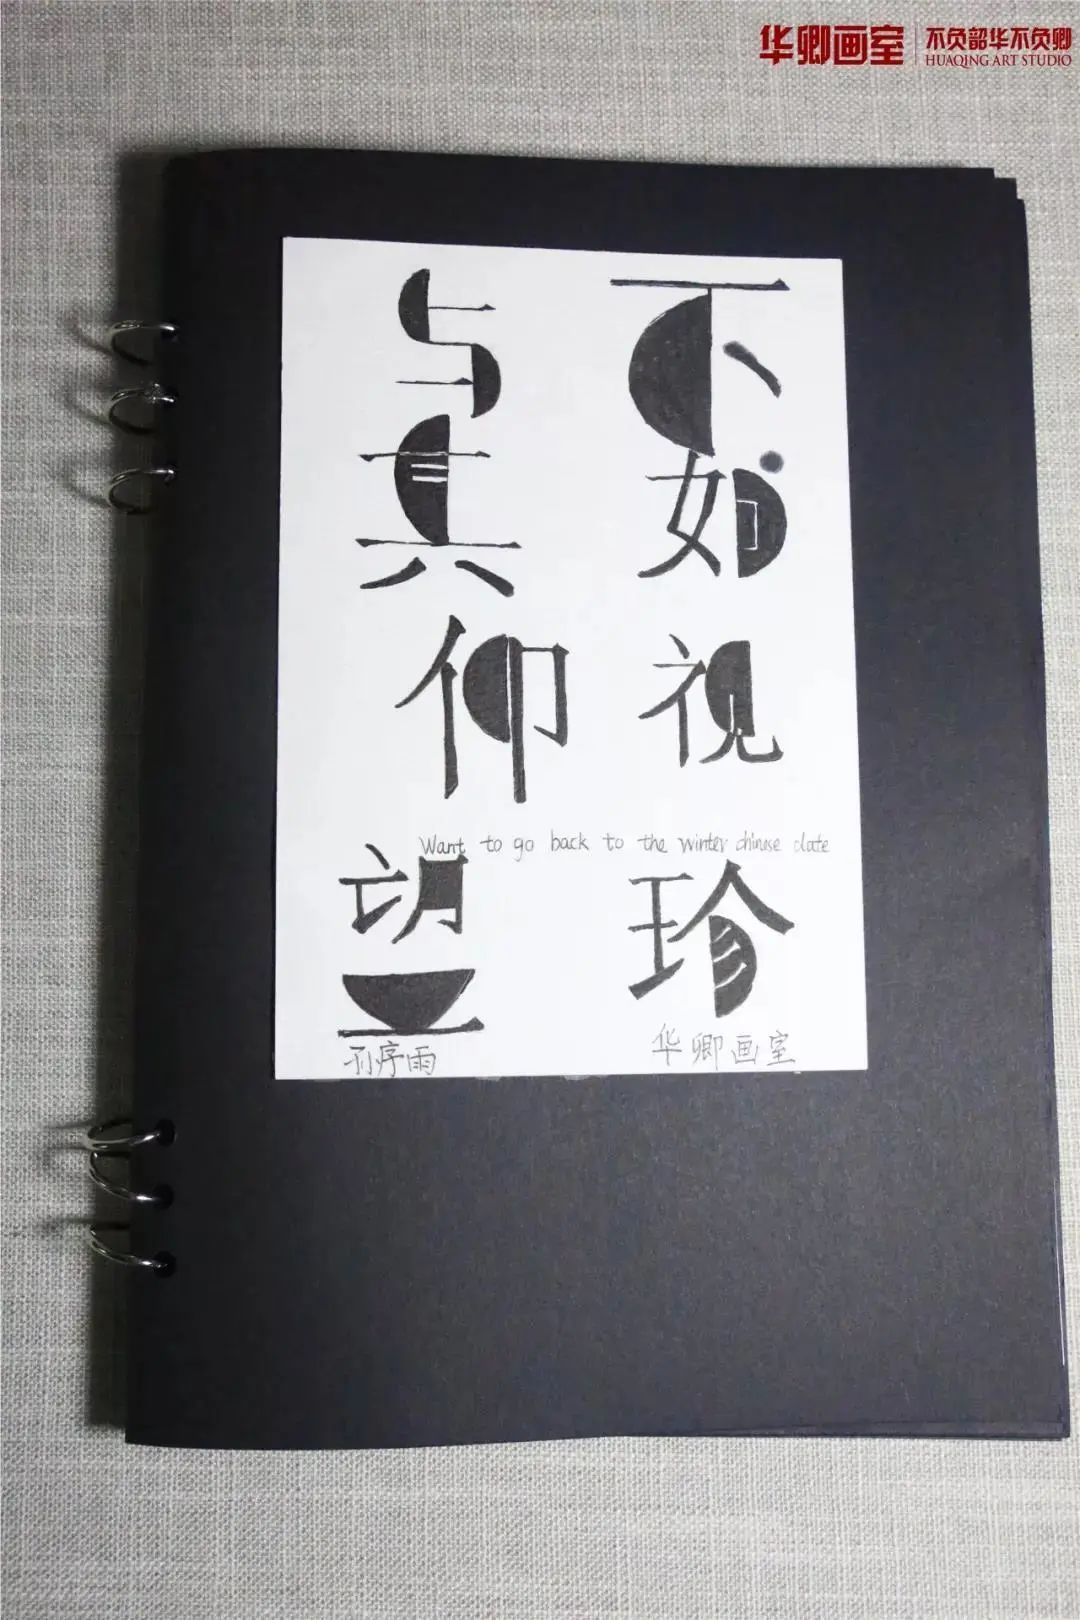 华卿画室
不负韶华不负卿
HUAQING ART STUDIO
与其仰望
不如视珍
Want to go back to the winter chinese date
孙序雨
华卿画室